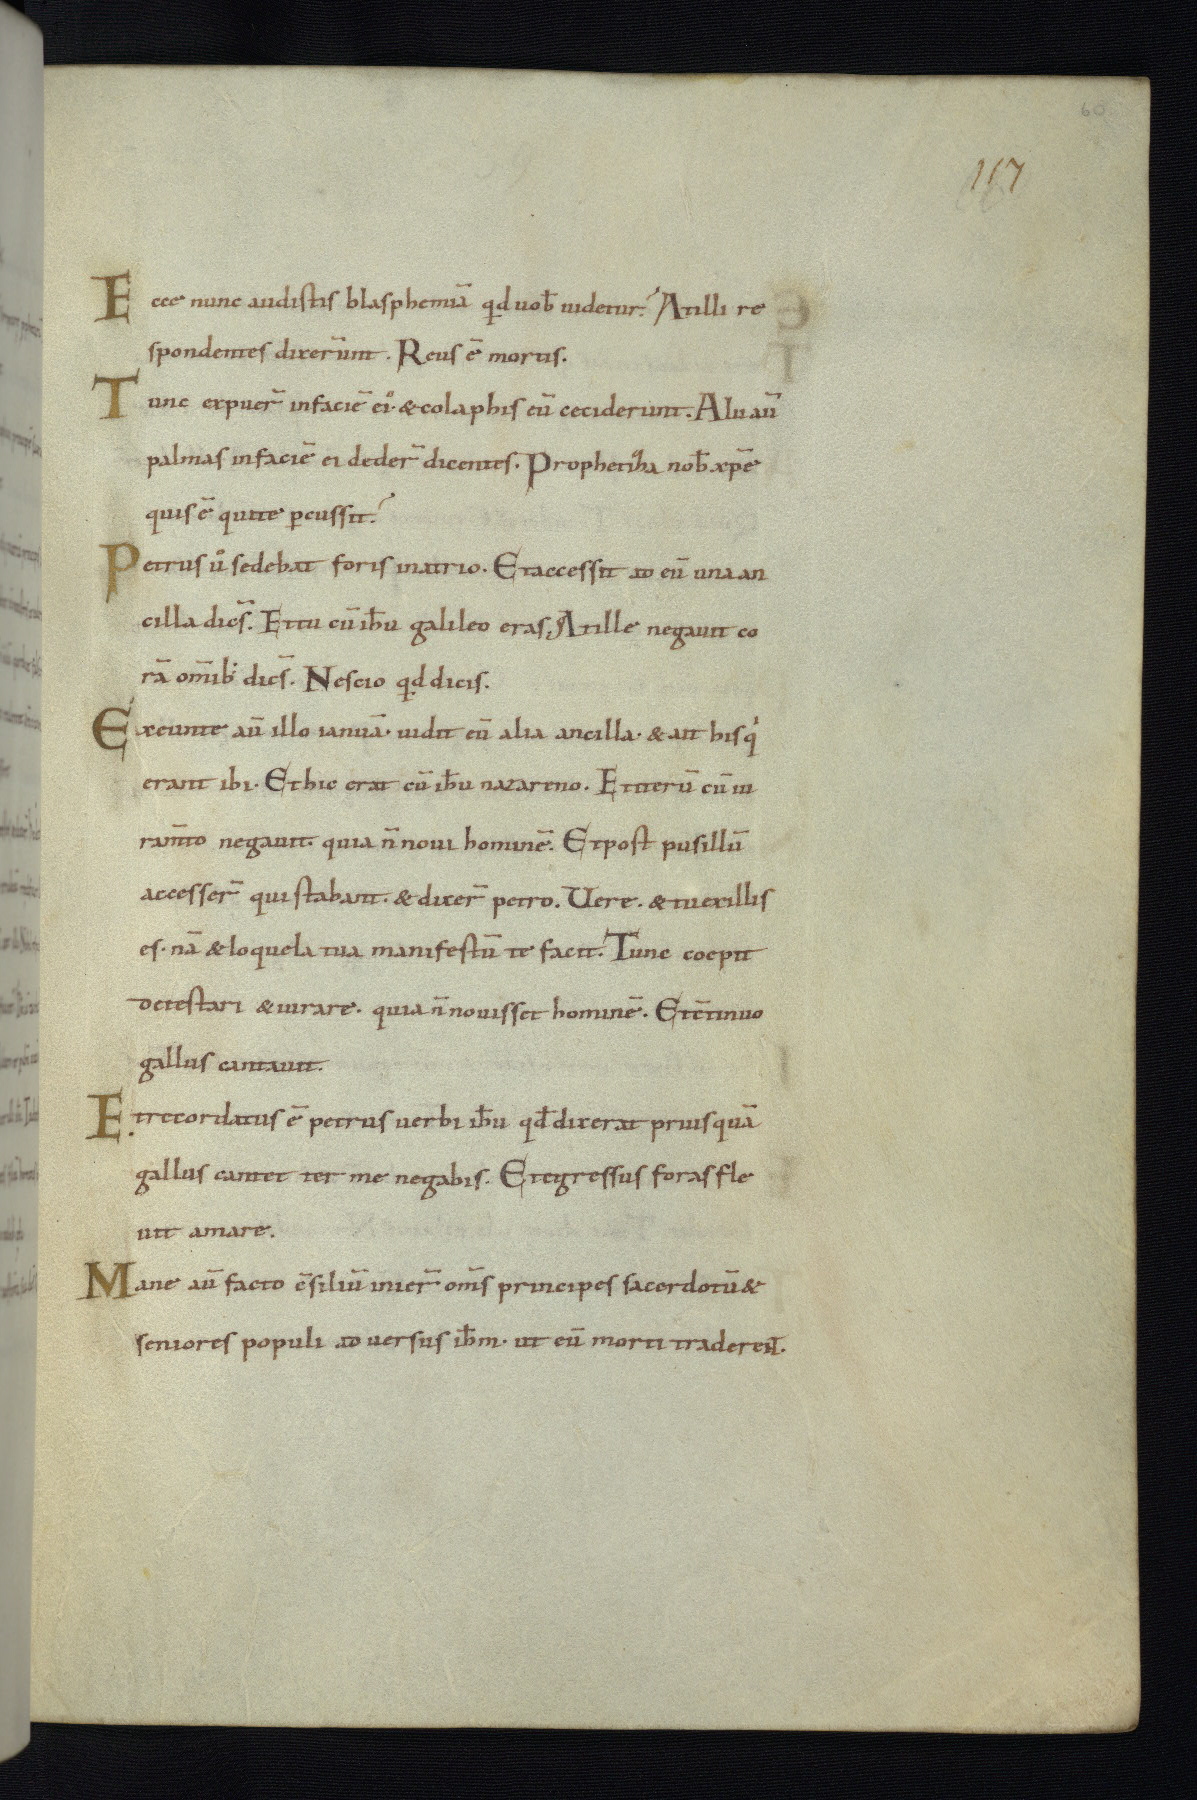 60
117
Ecce nunc audistis blasphemiā qđ uob̄ uidetur? At illi re
spondentes dixer̄unt. Reus ē mortis.
Tunc expuer̄ in faciē ei᾿ & colaphis eū ceciderunt. Alii aū
palmas in faciē ei deder̄ dicentes. Prophetiza nob̄ xp̄e
quis ē qui te p̄cussit?
Petrus ů sedebat foris in atrio. Et accessit ad eū una an
cilla dics̄. Et tu cū ih̄u galileo eras. At ille negauit co
rā om̄ib; dics̄. Nescio qđ dicis.
Exeunte aū illo ianuā. uidit eū alia ancilla. & ait his qͥ
erant ibi. Et hic erat cū ih̄u nazareno. Et iterū cū iu
ram̄to negauit. quia n̄ noui hominē. Et post pusillū
accesser̄ qui stabant. & dixer̄ petro. Uere. & tu ex illis
es. nā & loquela tua manifestū te facit. Tunc coepit
detestari & iurare. quia n̄ nouisset hominē. Et c̄tinuo
gallus cantauit.
Et recordatus ē petrus uerbi ih̄u qđ dixerat priusquā
gallus cantet ter me negabis. Et egressus foras fle
uit amare.
Mane aū facto c̄siliū inier̄ om̄s principes sacerdotū &
seniores populi aduersus ih̄m. ut eū morti traderen̄t.